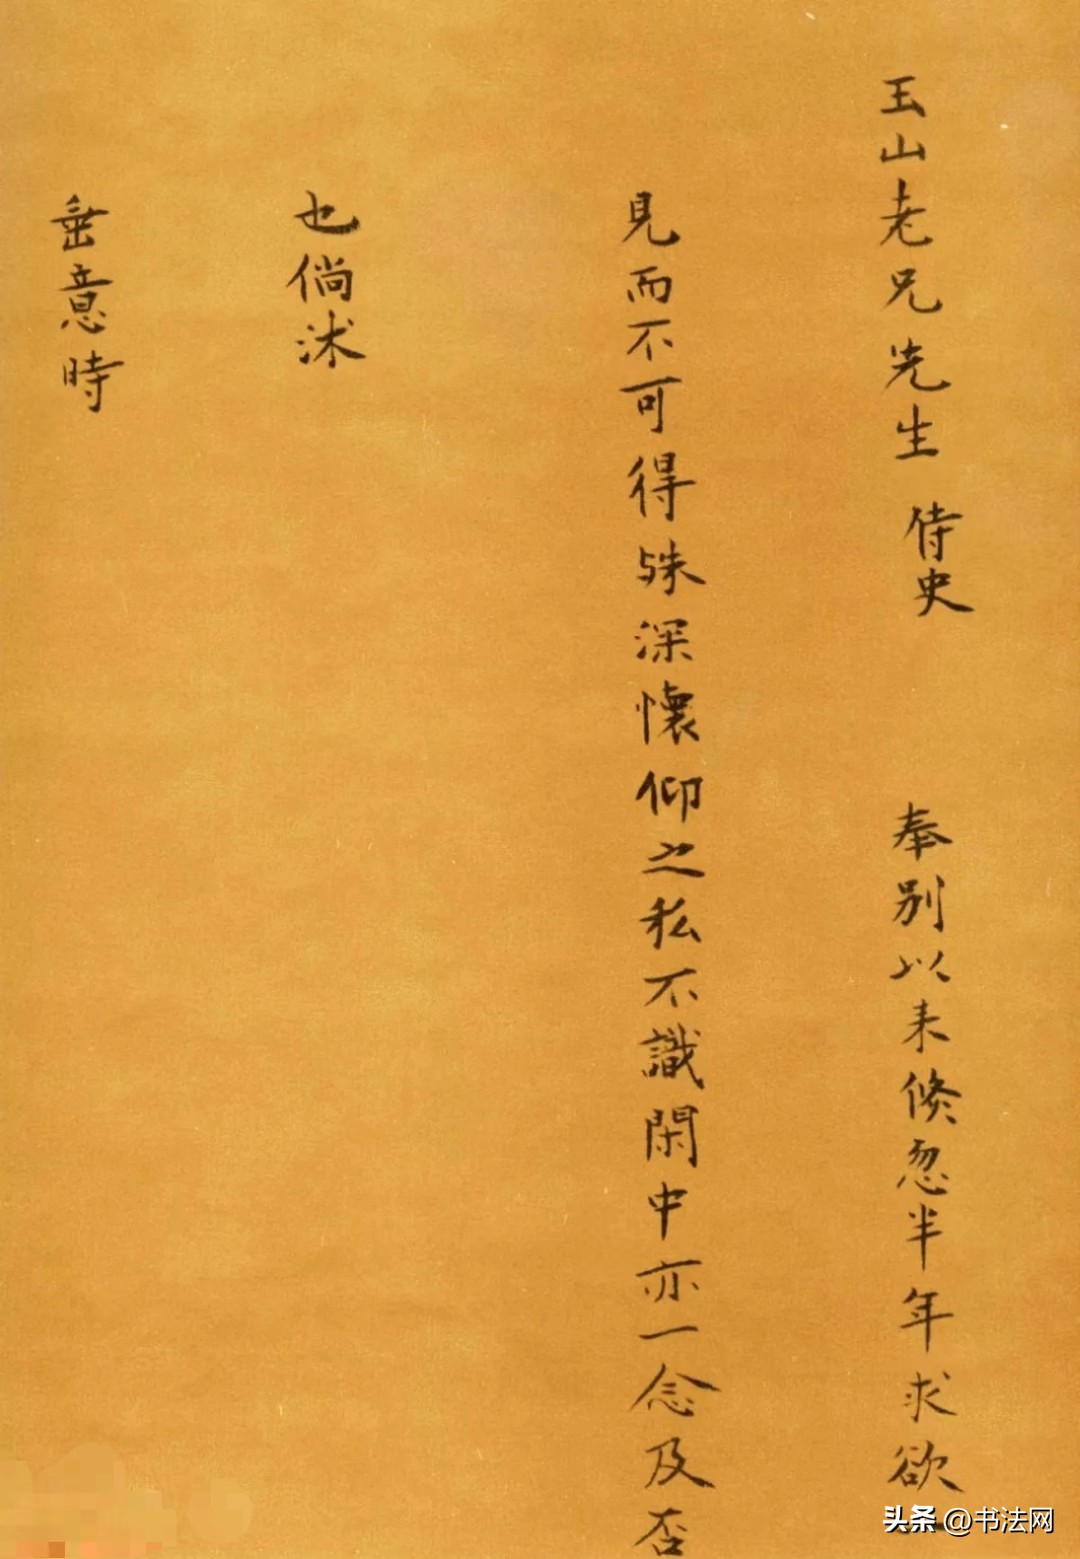 玉山老兄先生 侍史 奉別以来倏忽半年求欲一
見而不可得殊深懷仰之私不識閑中亦一念及否
也倘沭
垂意時
头条 @书法网